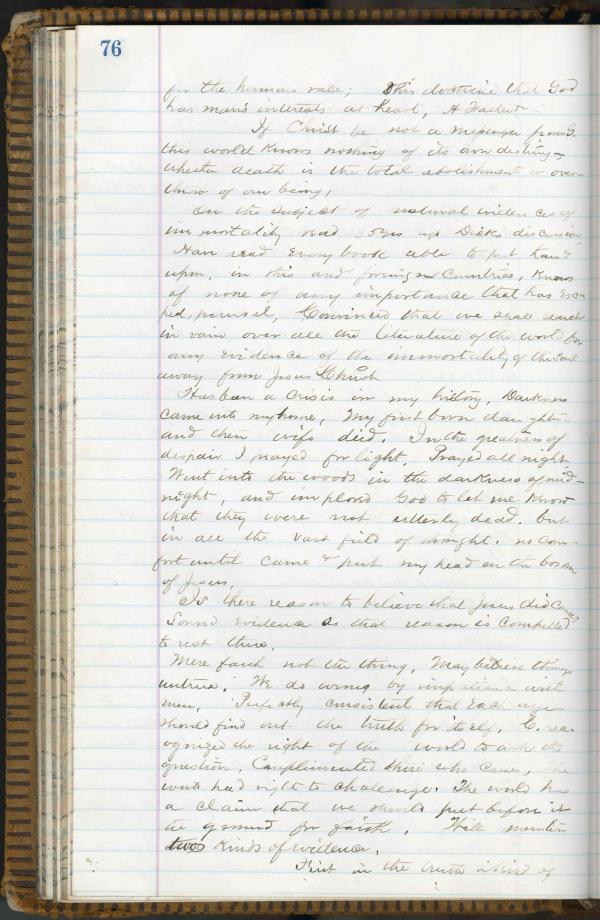 76
for the human race; This doctrine that God
has man's interests at heart, A Father
If Christ be not a messenger from G.
this world knows nothing of its own destiny,
whether death is the total abolishment or over
throw of our being,
On the subject of natural evidences of
immortality read 35 yrs ago Dick's discussion,
Have read every book able to put hand
upon, in this and foreign Countries, Know
of none of any importance that has esca
ped, perusal, Convinced that we shall search
in vain over all the literature of the world for
any evidence of the immortality of the soul
away from Jesus Christ
Has been a crisis in my history, Darkness
came into my home, My first born daughter
and then wife died. In the greatness of
despair I prayed for light, Prayed all night,
Went into the woods in the darkness of mid-
night, and implored God to let me know
that they were not utterly dead. but
in all the vast field of thought, no com-
fort until came & put my head on the bosom
of Jesus,
Is there reason to believe that Jesus did
Sound evidence as that reason is compelled
to rest there,
Mere faith not the thing, May believe things
untrue. We do wrong by impatience with
men, Perfectly consistent that each age
should find out the truth for itself, C. rec-
ognized the right of the world to ask the
question, Complimented those who came, The
world had right to challenge. The world has
a claim that we should put before it
the ground for faith, Will mention
two kinds of evidence,
First in the truth